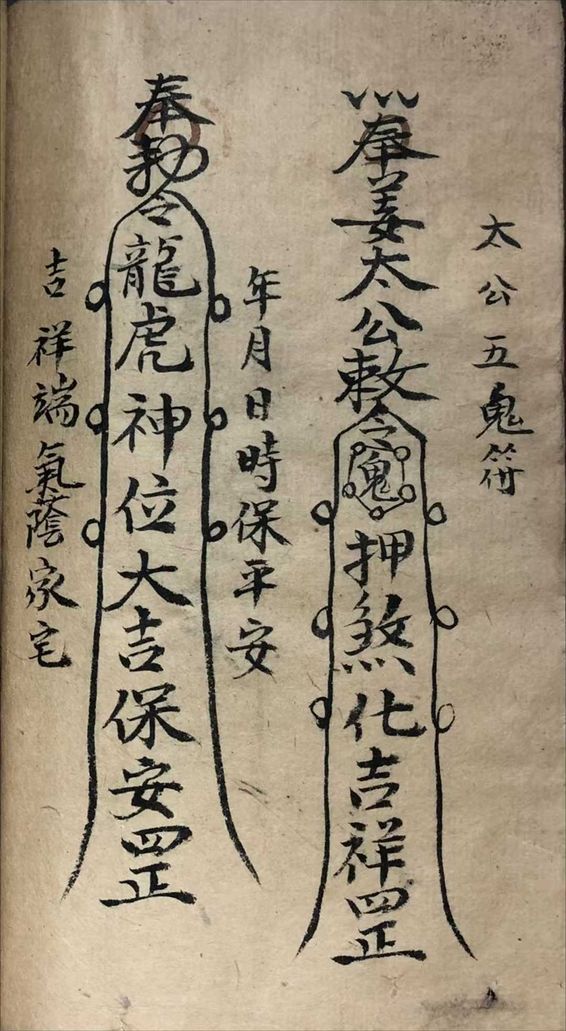 太公五鬼符
奉姜太公敕令鬼押煞化吉祥罡
年月日時保平安
奉勅令龍虎神位大吉保安罡
吉祥端氣蔭家宅